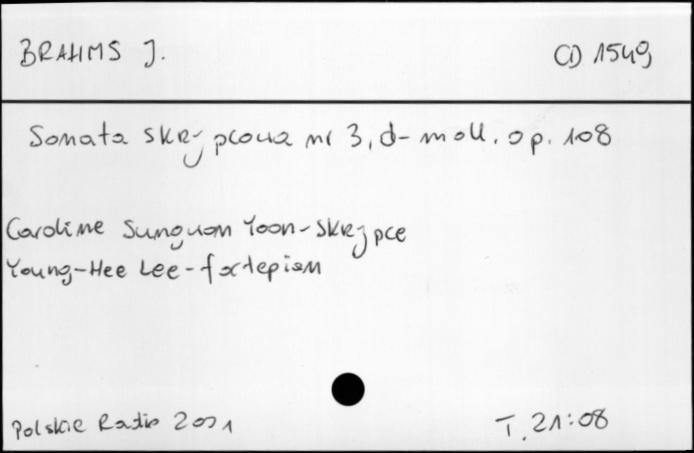 BRAHMS J.
CD 1549
Sonata skrzypcowa nr 3, d-moll. op. 108
Caroline Sunguon Yoon - skrzypce
Young-Hee Lee - fortepian
Polskie Radio 2001
T. 21:08